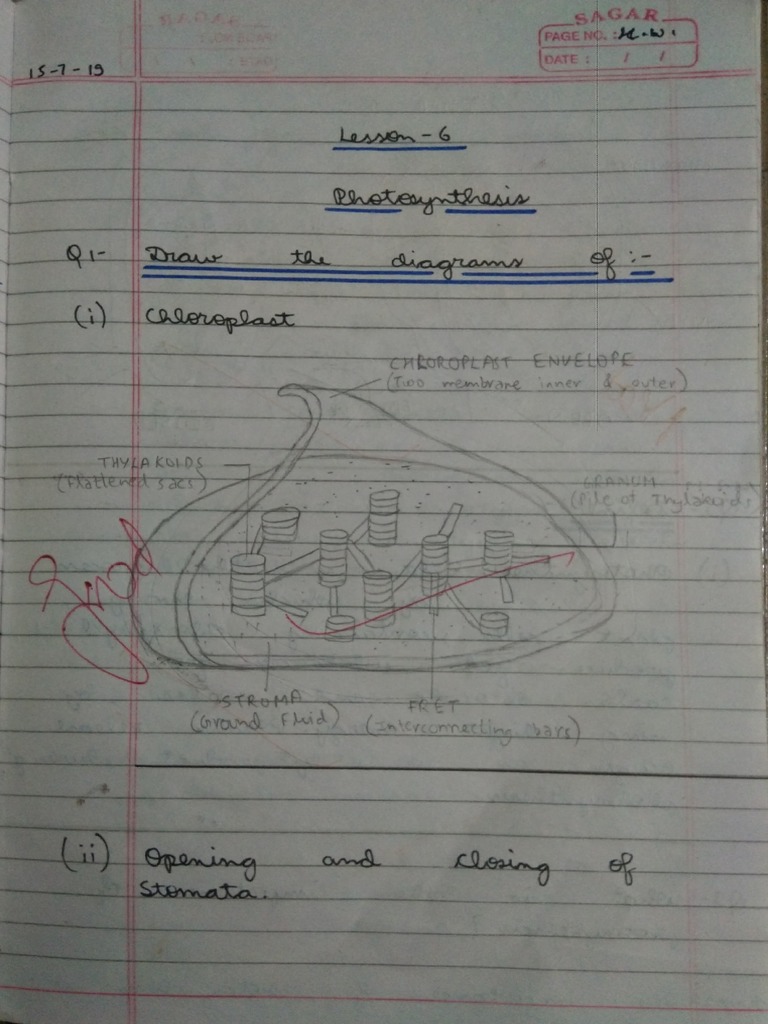 SAGAR
PAGE NO. : H.W.
DATE : / /
15-7-19
Lesson - 6
Photosynthesis
Q1- Draw the diagrams of :-
(i) Chloroplast
CHLOROPLAST ENVELOPE
(Two membrane inner & outer)
THYLAKOIDS
(Flattened sacs)
GRANUM
(Pile of Thylakoids
STROMA
(Ground Fluid)
FRET
(Interconnecting bars)
(ii) Opening and closing of
Stomata.